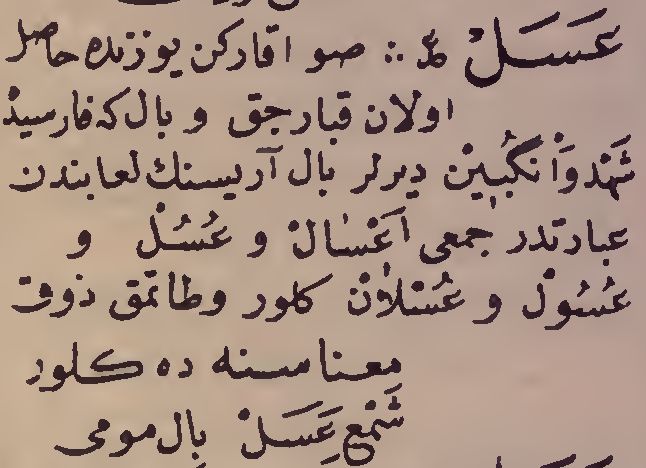 عَسَلْ ع :. صو اقاركن يوزنده حاصل
اولان قبارجق و بال كه فارسيده
شَهْدْ وَاَنْكُبِينْ ديرلر بال آريسنك لعابندن
عبارتدر جمعى اَعْسَالْ و عُسُلْ و
عُسُولْ و عُسْلَانْ كلور وطاتمق ذوق
معناسنه ده كلور
شَمْعِ عَسَلْ بال مومى